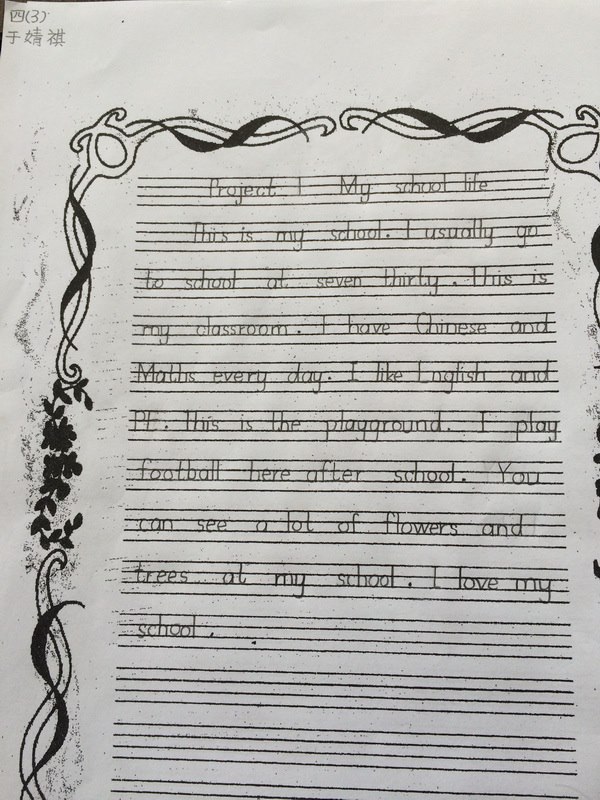 四(3)
于婧祺
Project 1 My school life
This is my school. I usually go
to school at seven thirty. This is
my classroom. I have Chinese and
Maths every day. I like English and
PE. This is the playground. I play
football here after school. You
can see a lot of flowers and
trees at my school. I love my
school.